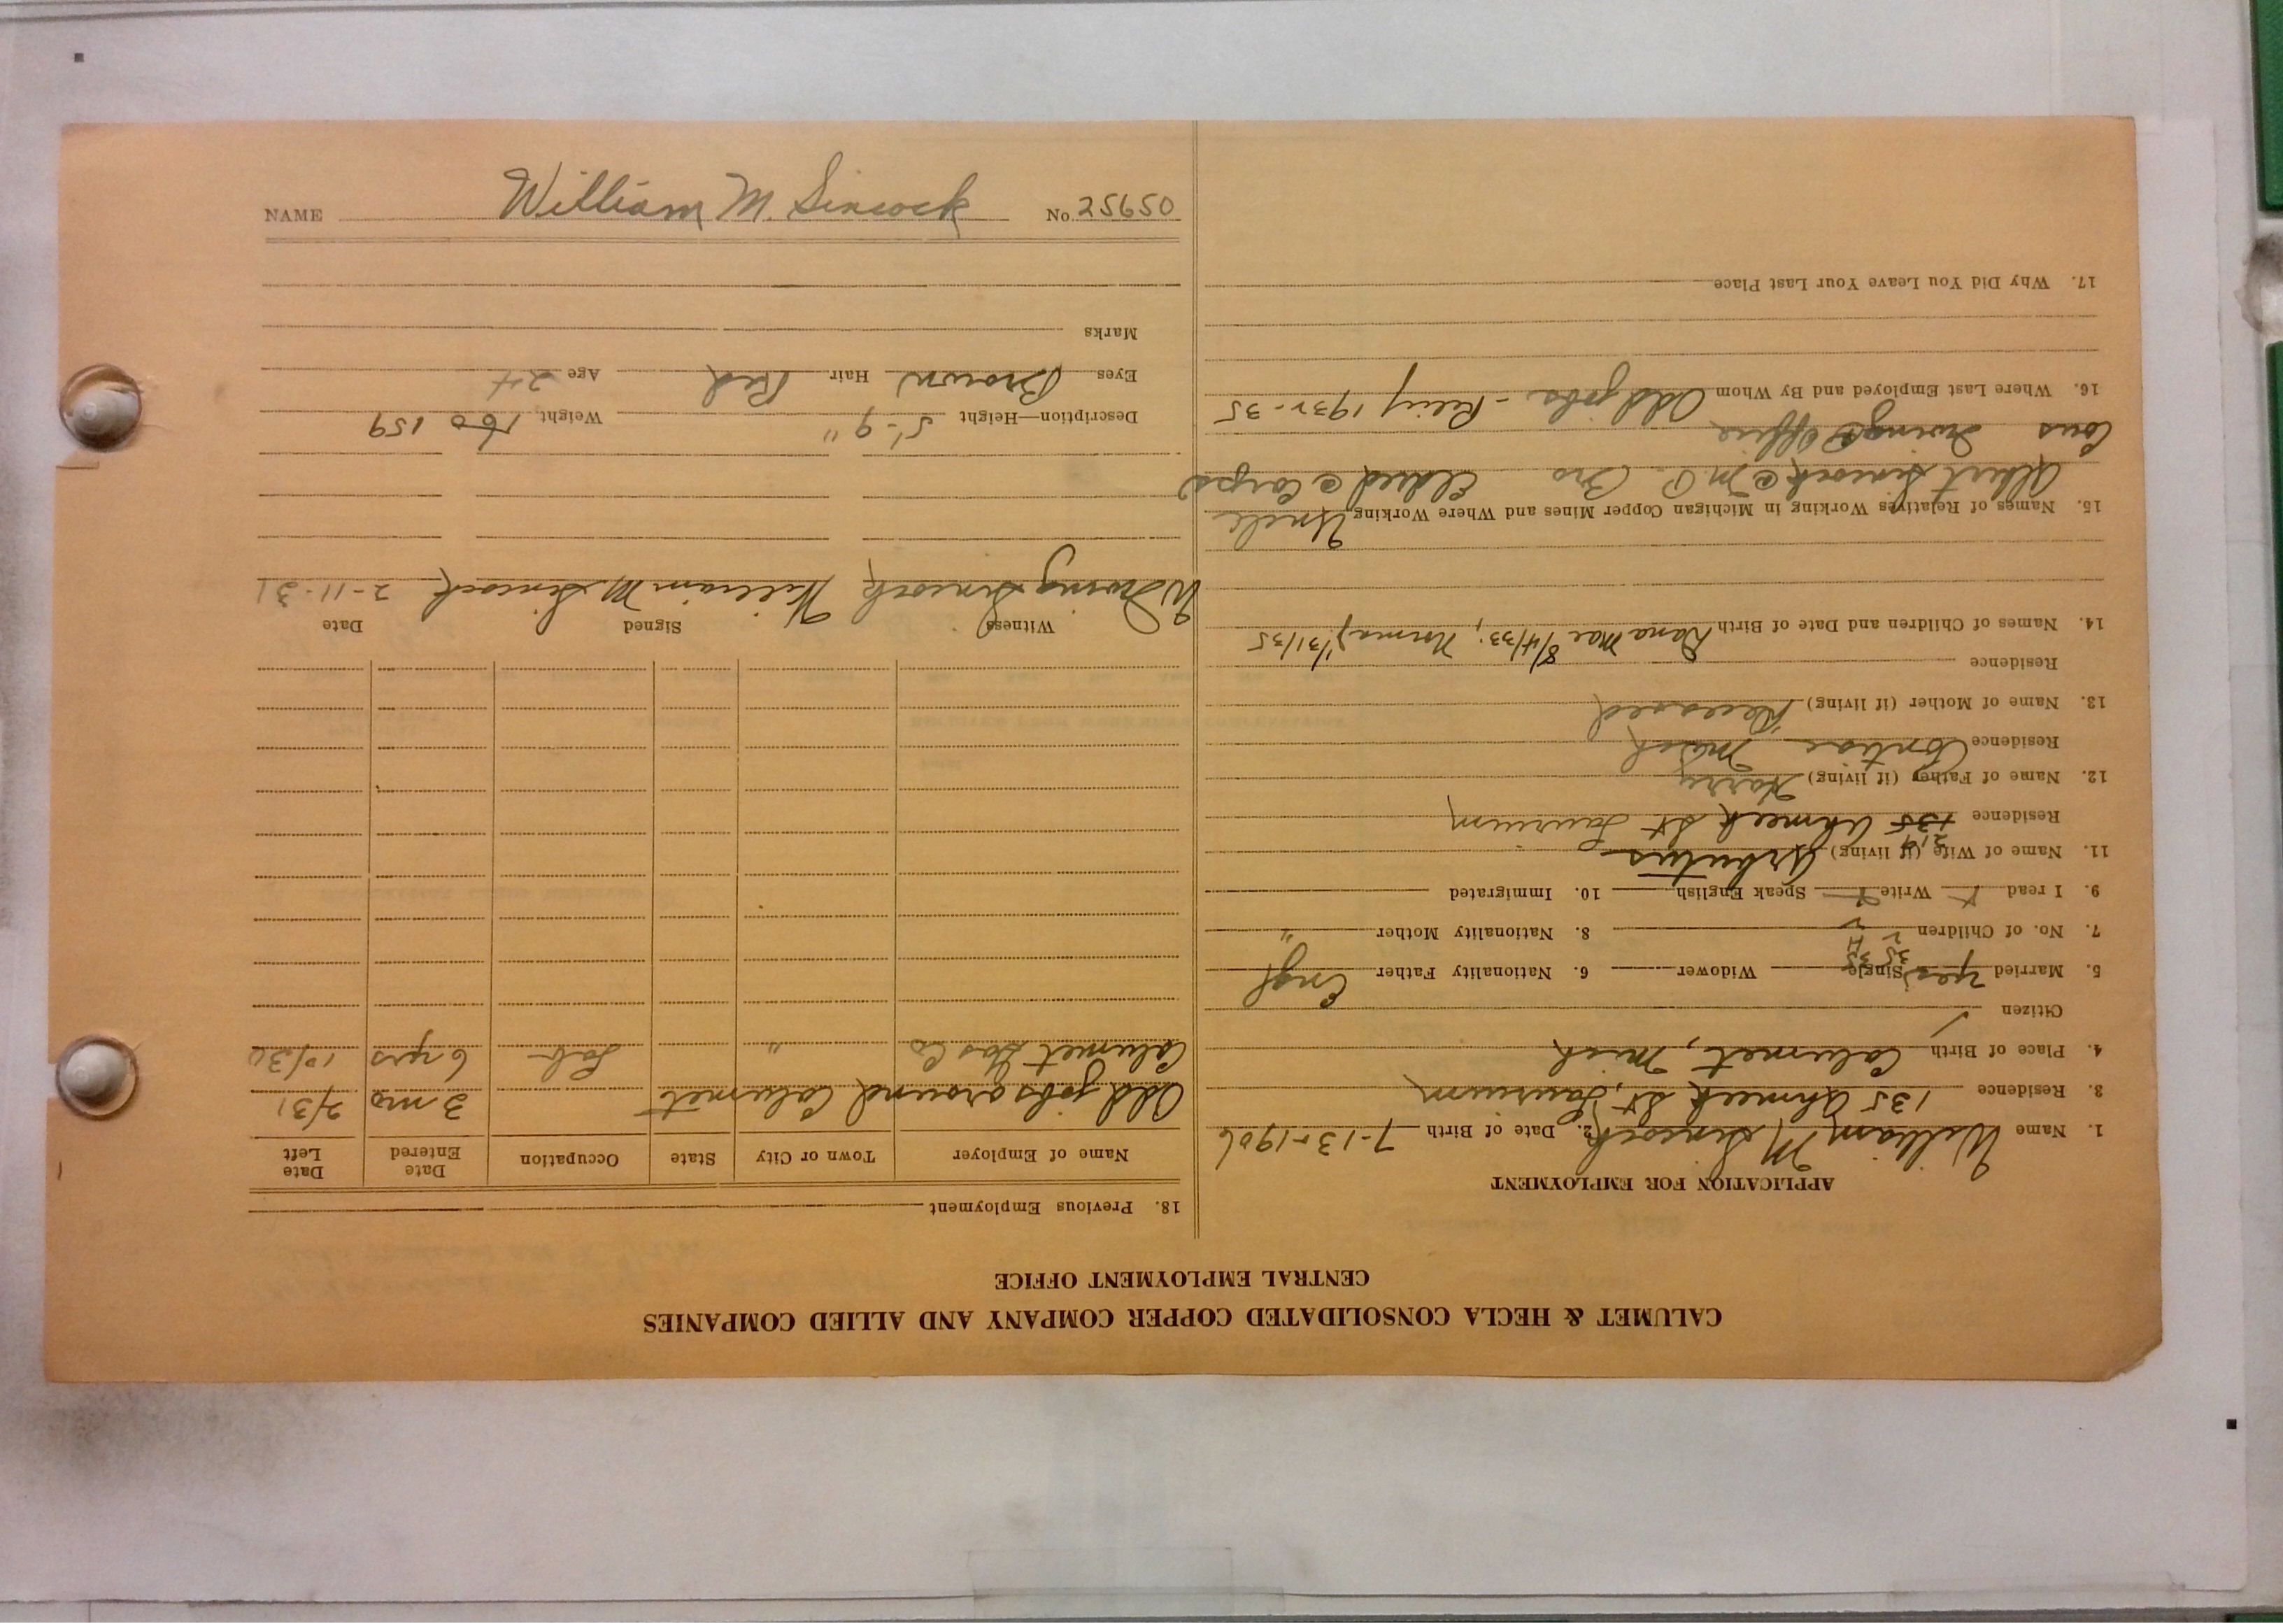 CALUMET & HECLA CONSOLIDATED COPPER COMPANY AND ALLIED COMPANIES
CENTRAL EMPLOYMENT OFFICE
APPLICATION FOR EMPLOYMENT
1. Name William M Sincock 2. Date of Birth 7-13-1906
3. Residence 135 Ahmeek St, Laurium
4. Place of Birth Calumet, Mich
Citizen ✓
5. Married yes Single Widower 6. Nationality Father Engl
35 35
H
7. No. of Children 2 8. Nationality Mother "
9. I read Write Speak English 10. Immigrated
11. Name of Wife (if living) Arbutus
214
Residence 135 Ahmeek St Laurium
12. Name of Father (if living) Harry
Residence Pontiac Mich
13. Name of Mother (if living) Deceased
Residence
14. Names of Children and Date of Birth Dana Mae 8/4/33; Norma 1/31/35
15. Names of Relatives Working in Michigan Copper Mines and Where Working Uncle
Albert Sincock @ M.P. Bro Eldred @ Corps
Cous Irving @ Office
16. Where Last Employed and By Whom Odd jobs - 1932-35
17. Why Did You Leave Your Last Place
18. Previous Employment
Name of Employer Town or City State Occupation Date Entered Date Left
Odd jobs around Calumet 3 mo 2/31
Calumet Gas Co " Lab 6 yrs 10/30
Witness Signed Date
W Irving Sincock William M. Sincock 2-11-31
Description—Height 5'-9" Weight 160 159
Eyes Brown Hair Red Age 24
Marks
NAME William M. Sincock No. 25650